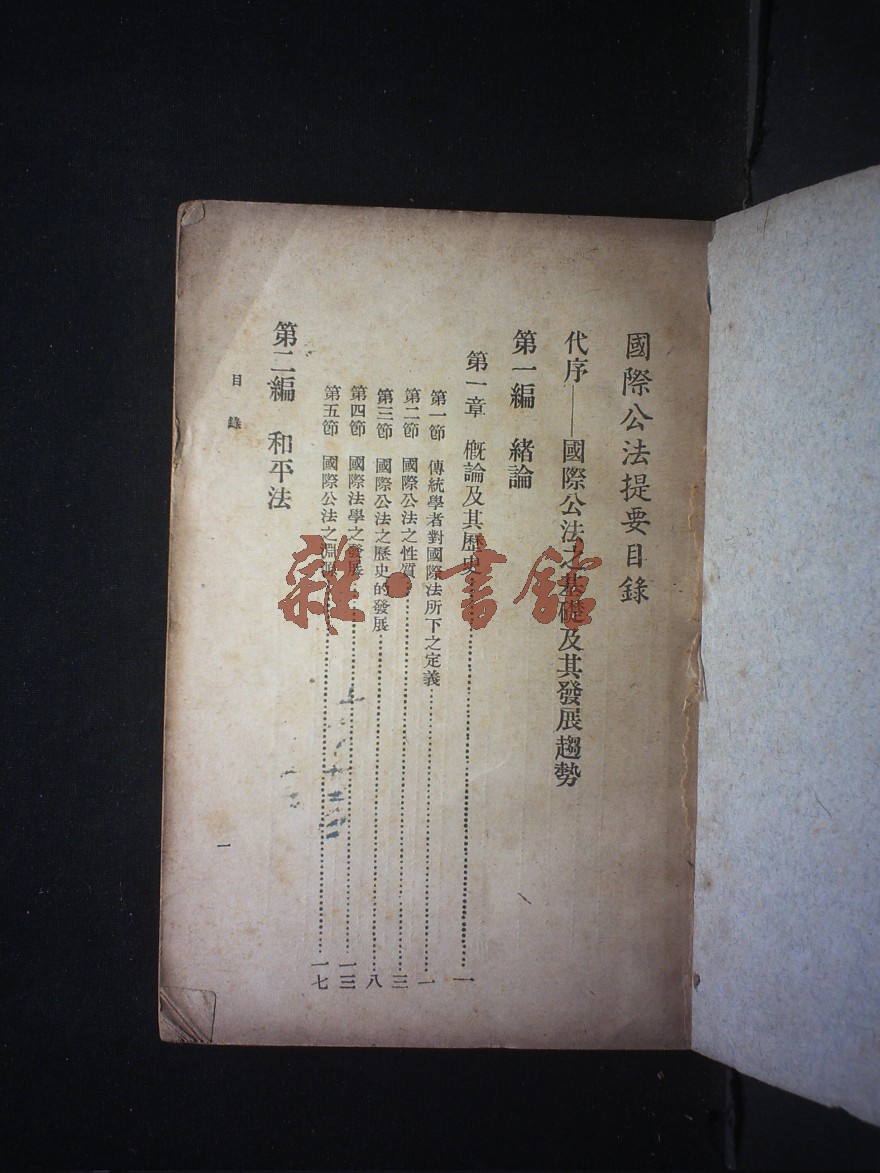 國際公法提要目錄
代序——國際公法之基礎及其發展趨勢
第一編 緒論
第一章 概論及其歷史……一
第一節 傳統學者對國際法所下之定義……一
第二節 國際公法之性質……三
第三節 國際公法之歷史的發展……八
第四節 國際法學之發展……一三
第五節 國際公法之淵源……一七
第二編 和平法
目錄
一
雜·書館